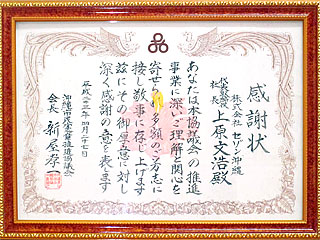 感謝状
株式会社 セリタ沖縄
代表取締役
社長 上原文浩殿
あなたは本協議会の推進
事業に深いご理解と関心を
寄せられ多額のご芳志に
接し敬事に存じ上げます
茲にその御厚意に対し
深く感謝の意を表します
平成二三年四月二十七日
会長 新屋孝一